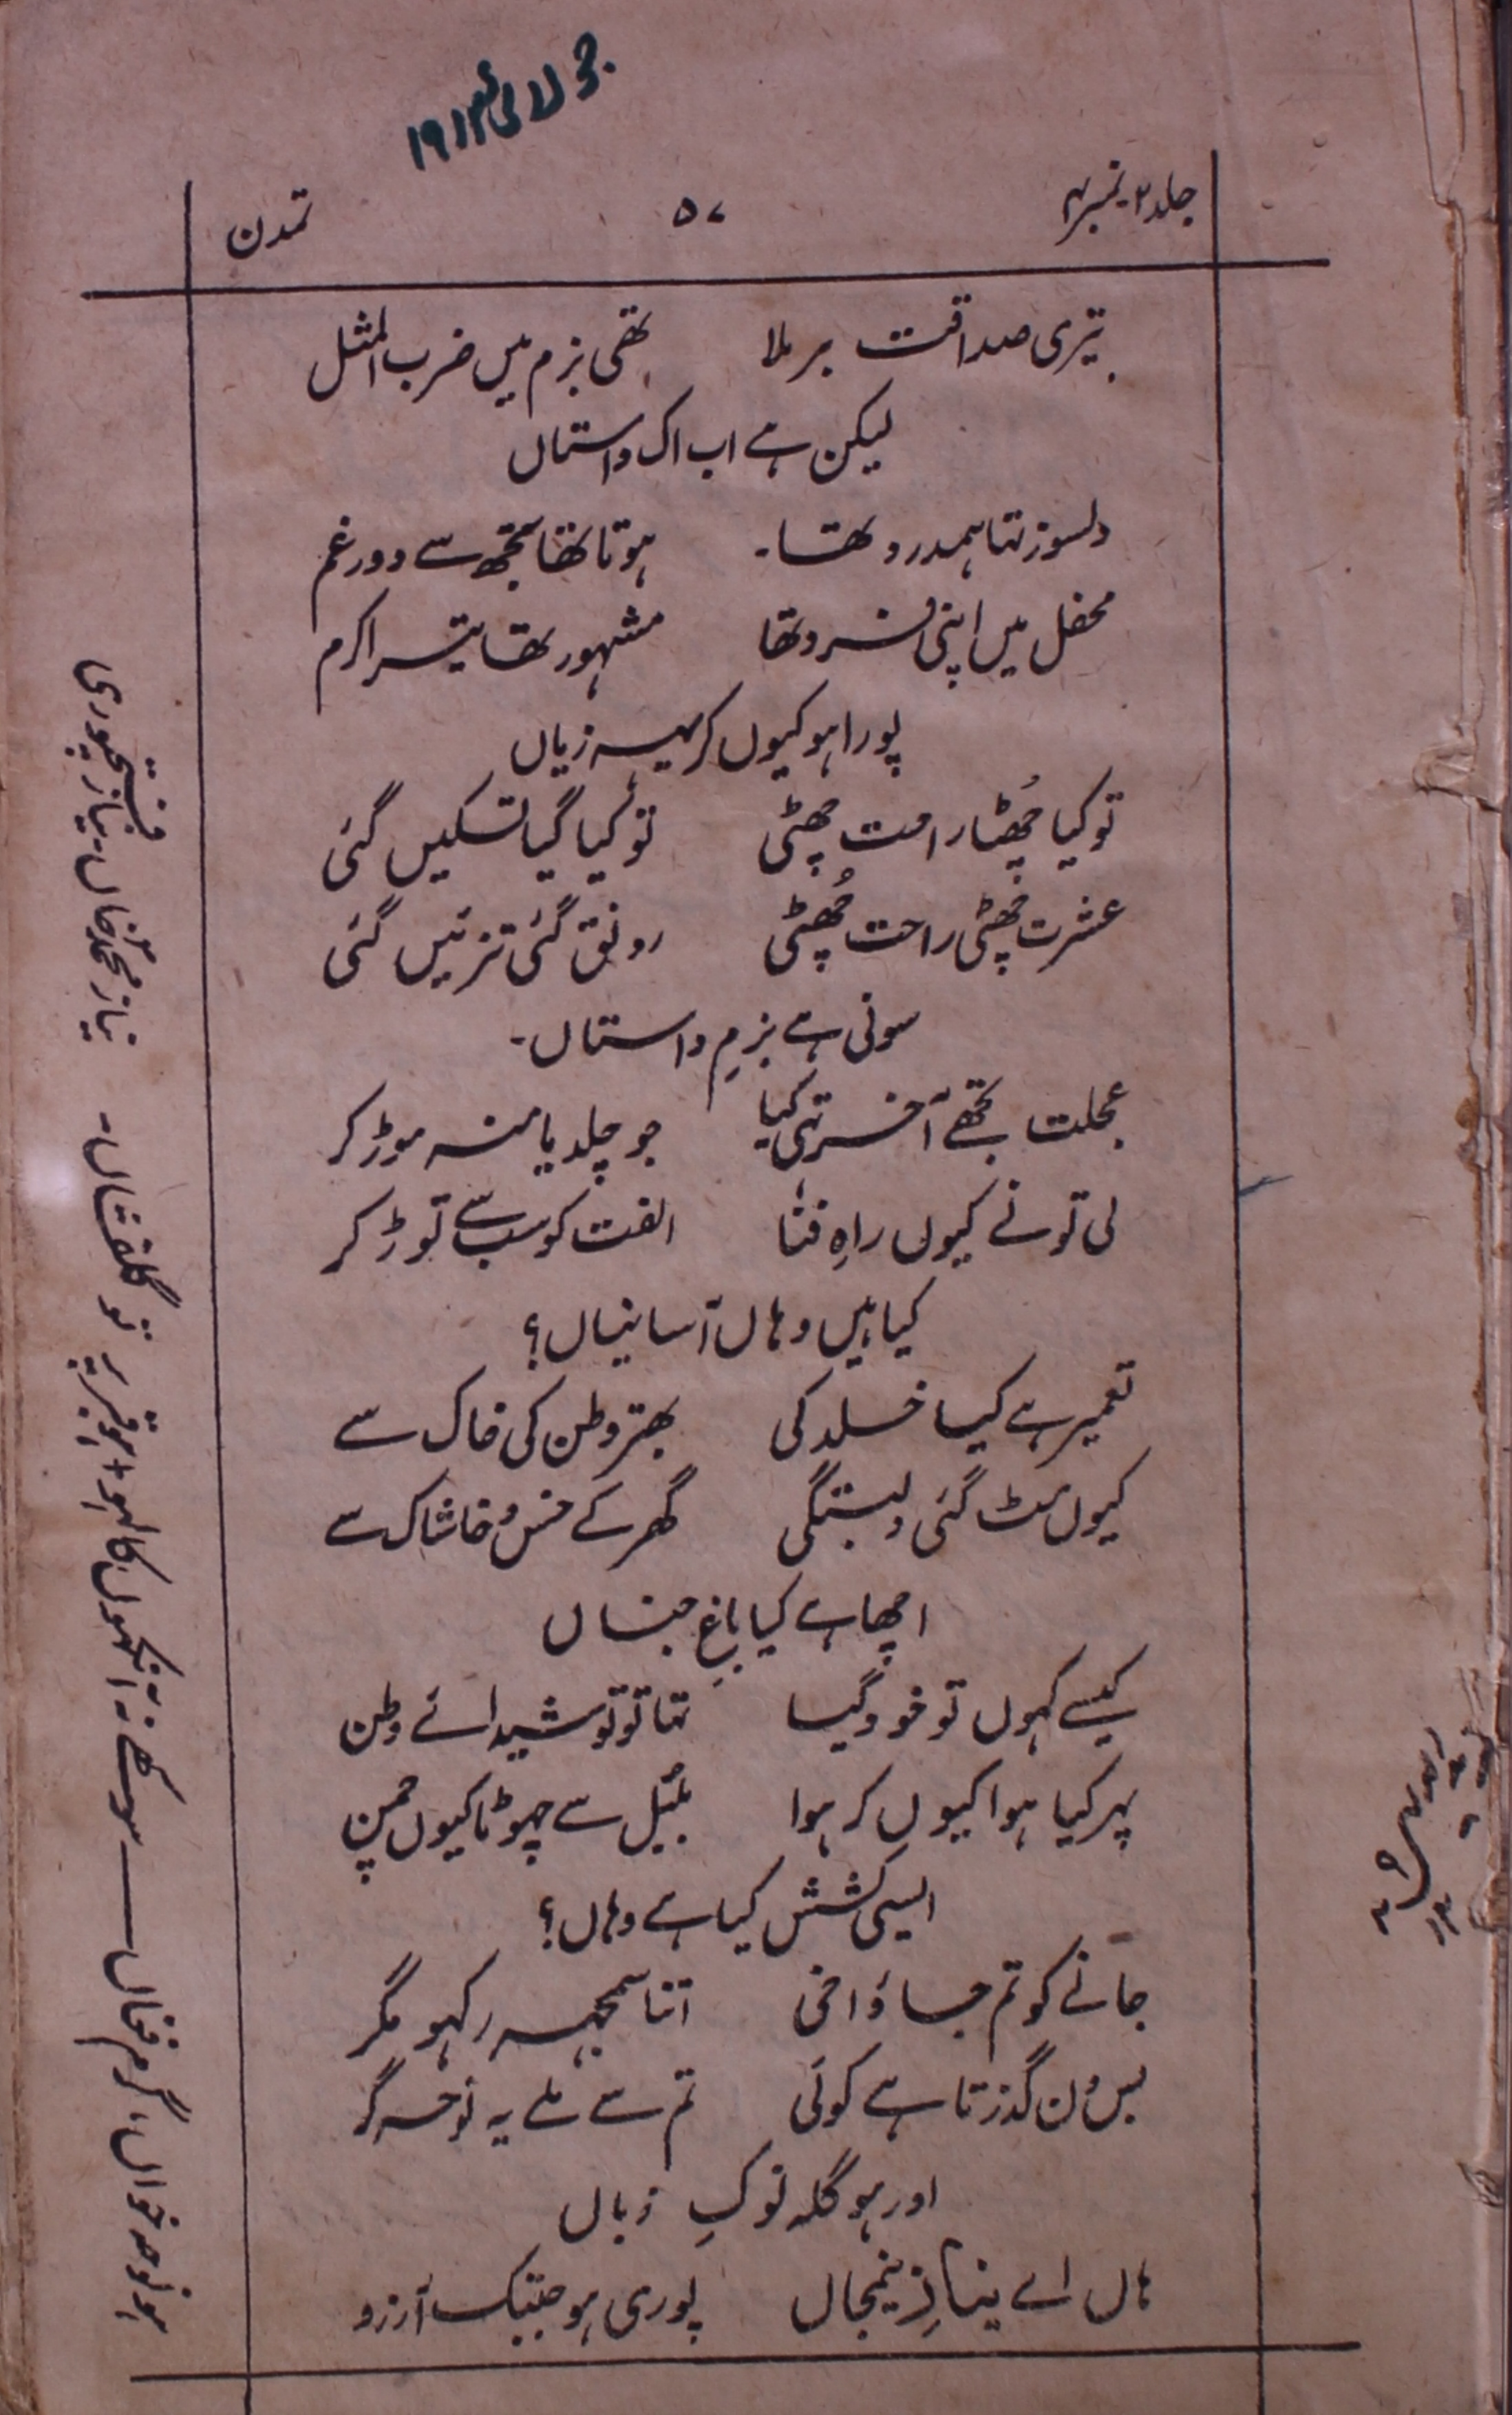 جولائی ۱۹۱۲ء
جلد ۳ نمبر ۴ ۵۷ تمدن
تیری صداقت برملا تھی بزم میں ضرب المثل
لیکن ہے اب اک داستاں
دلسوز تہا ہمدرد تھا۔ ہوتا تھا تجھ سے دور غم
محفل میں اپنی فرد تھا مشہور تھا تیرا کرم
پورا ہو کیوں کر یہہ زیاں
تو کیا چُھٹا راحت چھٹی تو کیا گیا تسکیں گئی
عشرت چُھٹی راحت چُھٹی رونق گئی تزئیں گئی
سونی ہے بزمِ داستاں۔
عجلت تجھے آخر تہی کیا جو چلدیا منہ موڑ کر
لی تونے کیوں راہِ فنا الفت کو سب سے توڑ کر
کیا ہیں وہاں آسانیاں؟
تعمیر ہے کیا خلد کی بہتر وطن کی خاک سے
کیوں مٹ گئی دلبستگی گھر کے خس و خاشاک سے
اچھا ہے کیا باغِ جناں
کیسے کہوں تو خود گیا تہا تو تو شیدائے وطن
پہر کیا ہوا کیوں کر ہوا بلبل سے چہوٹا کیوں چمن
ایسی کشش کیا ہے وہاں؟
جانے کو تم جاؤ اخی اتنا سمجہہ رکہو مگر
بس دن گذرتا ہے کوئی تم سے ملے یہ نوحہ گر
اور ہو گلہ نوکِ زباں
ہاں اے نیازِ نیمجاں پوری ہو جبتک آرزو
ہو نوحہ خواں، گرم فغاں — سوکھے نہ آنکہوں کا لہو + ہو قبر پر تو گلفشاں۔ نیاز محمد خاں۔ نیاز فتحپوری